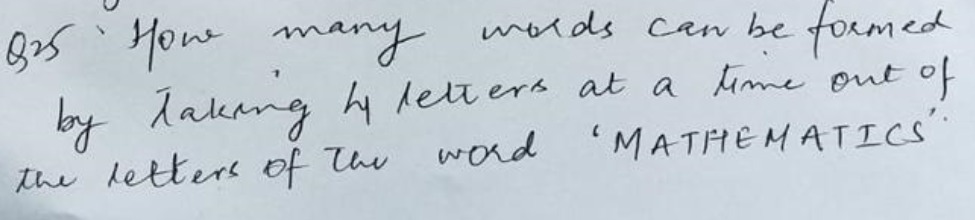 Q25. How many words can be formed
by taking 4 letters at a time out of
the letters of the word 'MATHEMATICS'.